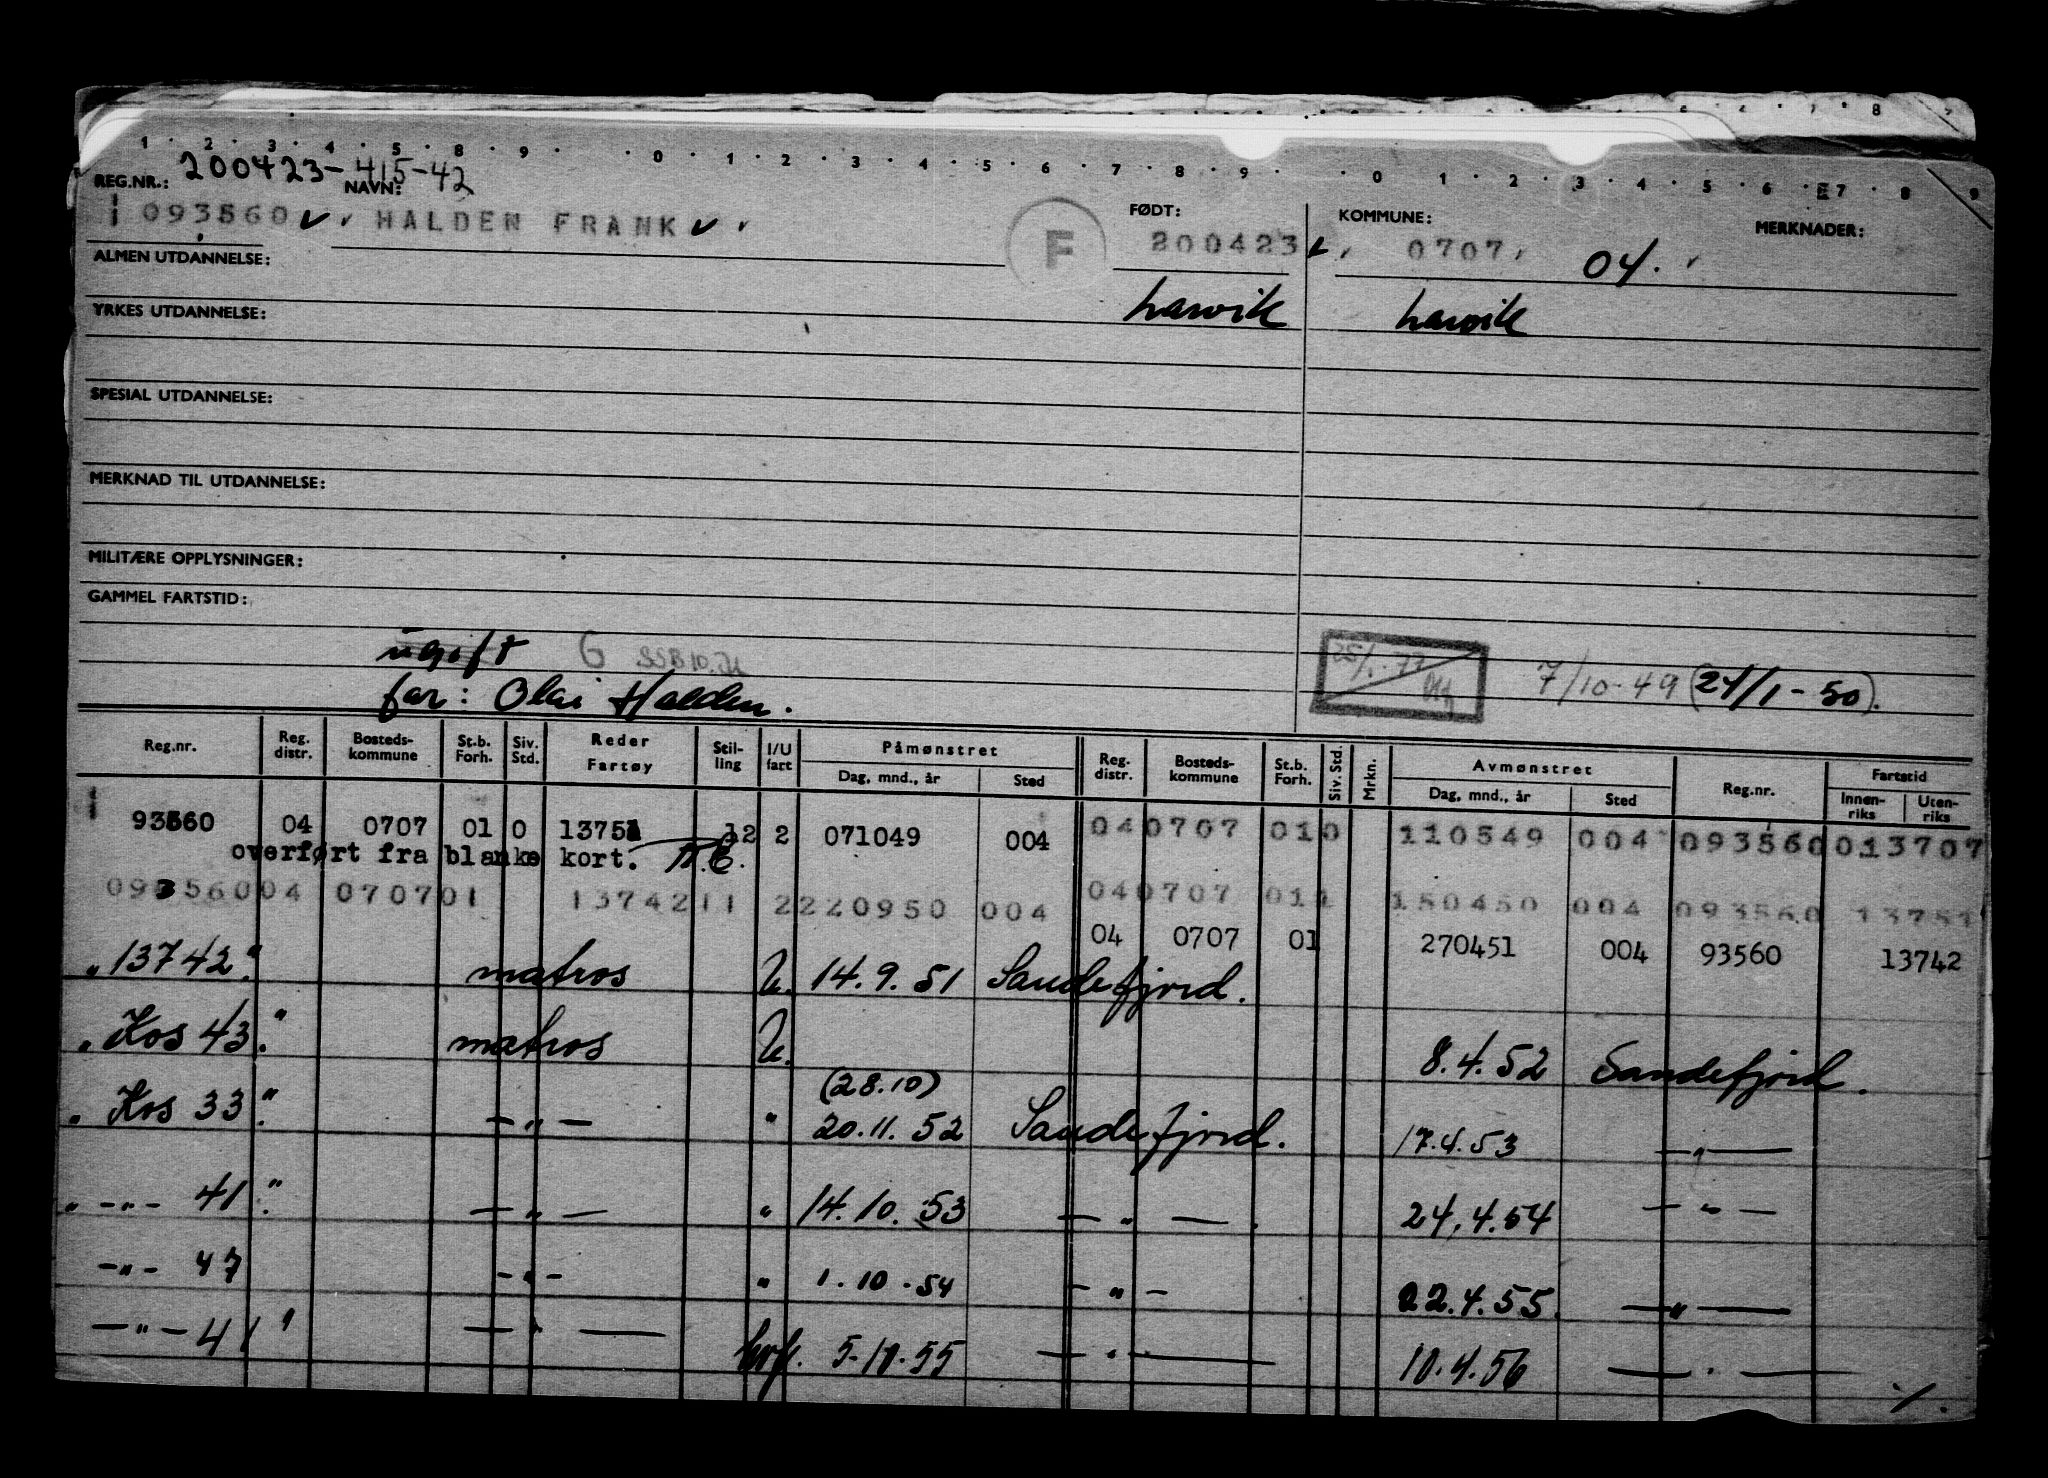 200423-415-42
REG.NR.: NAVN: FØDT: KOMMUNE: MERKNADER:
093560 HALDEN FRANK F 200423 0707 04.
ALMEN UTDANNELSE:
Larvik Larvik
YRKES UTDANNELSE:
SPESIAL UTDANNELSE:
MERKNAD TIL UTDANNELSE:
MILITÆRE OPPLYSNINGER:
GAMMEL FARTSTID:
ugift G
7/10-49 (24/1-50).
far: Olai Halden.
Reg.nr. Reg. distr. Bosteds-kommune St.b. Forh. Siv. Std. Reder Fartøy Stil-ling I/U fart Påmønstret Dag, mnd., år Sted Reg. distr. Bosteds-kommune St.b. Forh. Siv. Std. Mrkn. Avmønstret Dag, mnd., år Sted Reg.nr. Fartstid Innen-riks Uten-riks
93560 04 0707 01 0 13751 12 2 071049 004 040707 010 110549 004 093560 013707
overført fra blanke kort.
093560 04 0707 01 13742 11 2 220950 004 040707 011 150450 004 093560 13751
04 0707 01 270451 004 93560 13742
"13742." matros U. 14.9.51 Sandefjord.
"Kos 43." matros U. 8.4.52 Sandefjord.
(28.10)
"Kos 33." —"— " 20.11.52 Sandefjord. 17.4.53 —"—
" -"- 41." —"— " 14.10.53 —"—. 24.4.54 —"—
-"- 47 -"- " 1.10.54 -"- 22.4.55. —"—
—"— 41" —"— 5.10.55 —"— 10.4.56 —"—